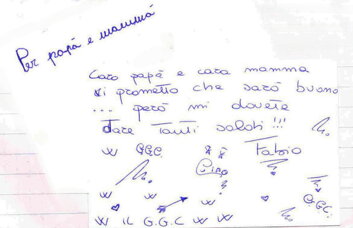 Per papà e mammà
Caro papà e cara mamma
vi prometto che sarò buono
... però mi dovete
dare tanti saldi !!!
W G.G.C. Fabio
Ciao
W W G.G.C.
W IL G.G.C W W